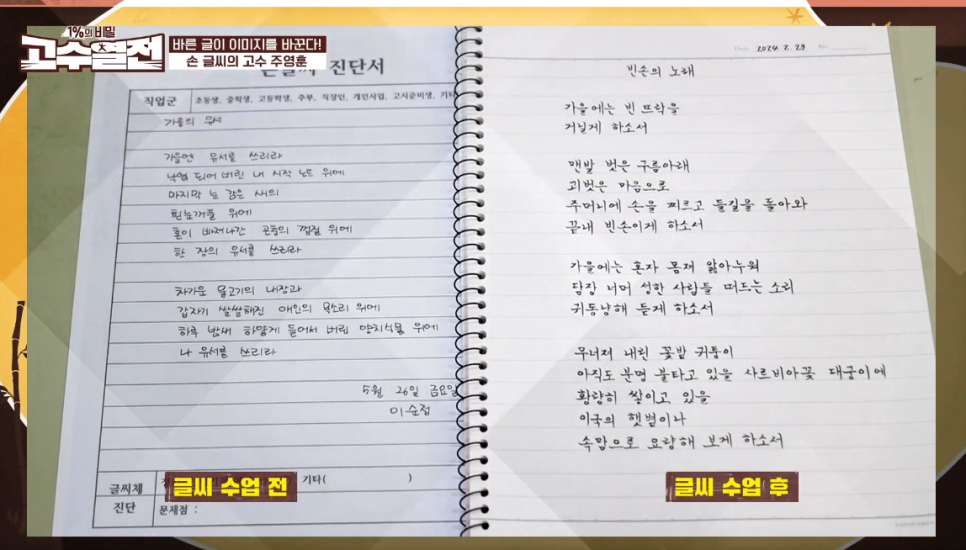 1%의 비밀
고수열전
바른 글이 이미지를 바꾼다!
손 글씨의 고수 주영훈
진단서
직업군 초등생, 중학생, 고등학생, 주부, 직장인, 개인사업, 고시준비생, 기타
가을의 유서
가을엔 유서를 쓰리라
낙엽 되어 버린 내 시작 노트 위에
마지막 눈 감은 새의
흰눈꺼풀 위에
혼이 빠져나간 곤충의 껍질 위에
한 장의 유서를 쓰리라
차가운 물고기의 내장과
갑자기 쌀쌀해진 애인의 목소리 위에
하룻 밤새 하얗게 들어서 버린 양치식물 위에
나 유서를 쓰리라
5월 26일 금요일
이순정
글씨체
진단
기타( )
문제점 :
글씨 수업 전
Date 2024. 2. 29 No.
빈손의 노래
가을에는 빈 뜨락을
거닐게 하소서
맨발 벗은 구름아래
괴벗은 마음으로
주머니에 손을 찌르고 들길을 돌아와
끝내 빈손이게 하소서
가을에는 혼자 몸져 앓아누워
담장 너머 성한 사람들 떠드는 소리
귀동냥해 듣게 하소서
무너져 내린 꽃밭 귀퉁이
아직도 분명 불타고 있을 사르비아꽃 대궁이에
황량히 쌓이고 있을
이국의 햇볕이나
속맘으로 요량해 보게 하소서
글씨 수업 후